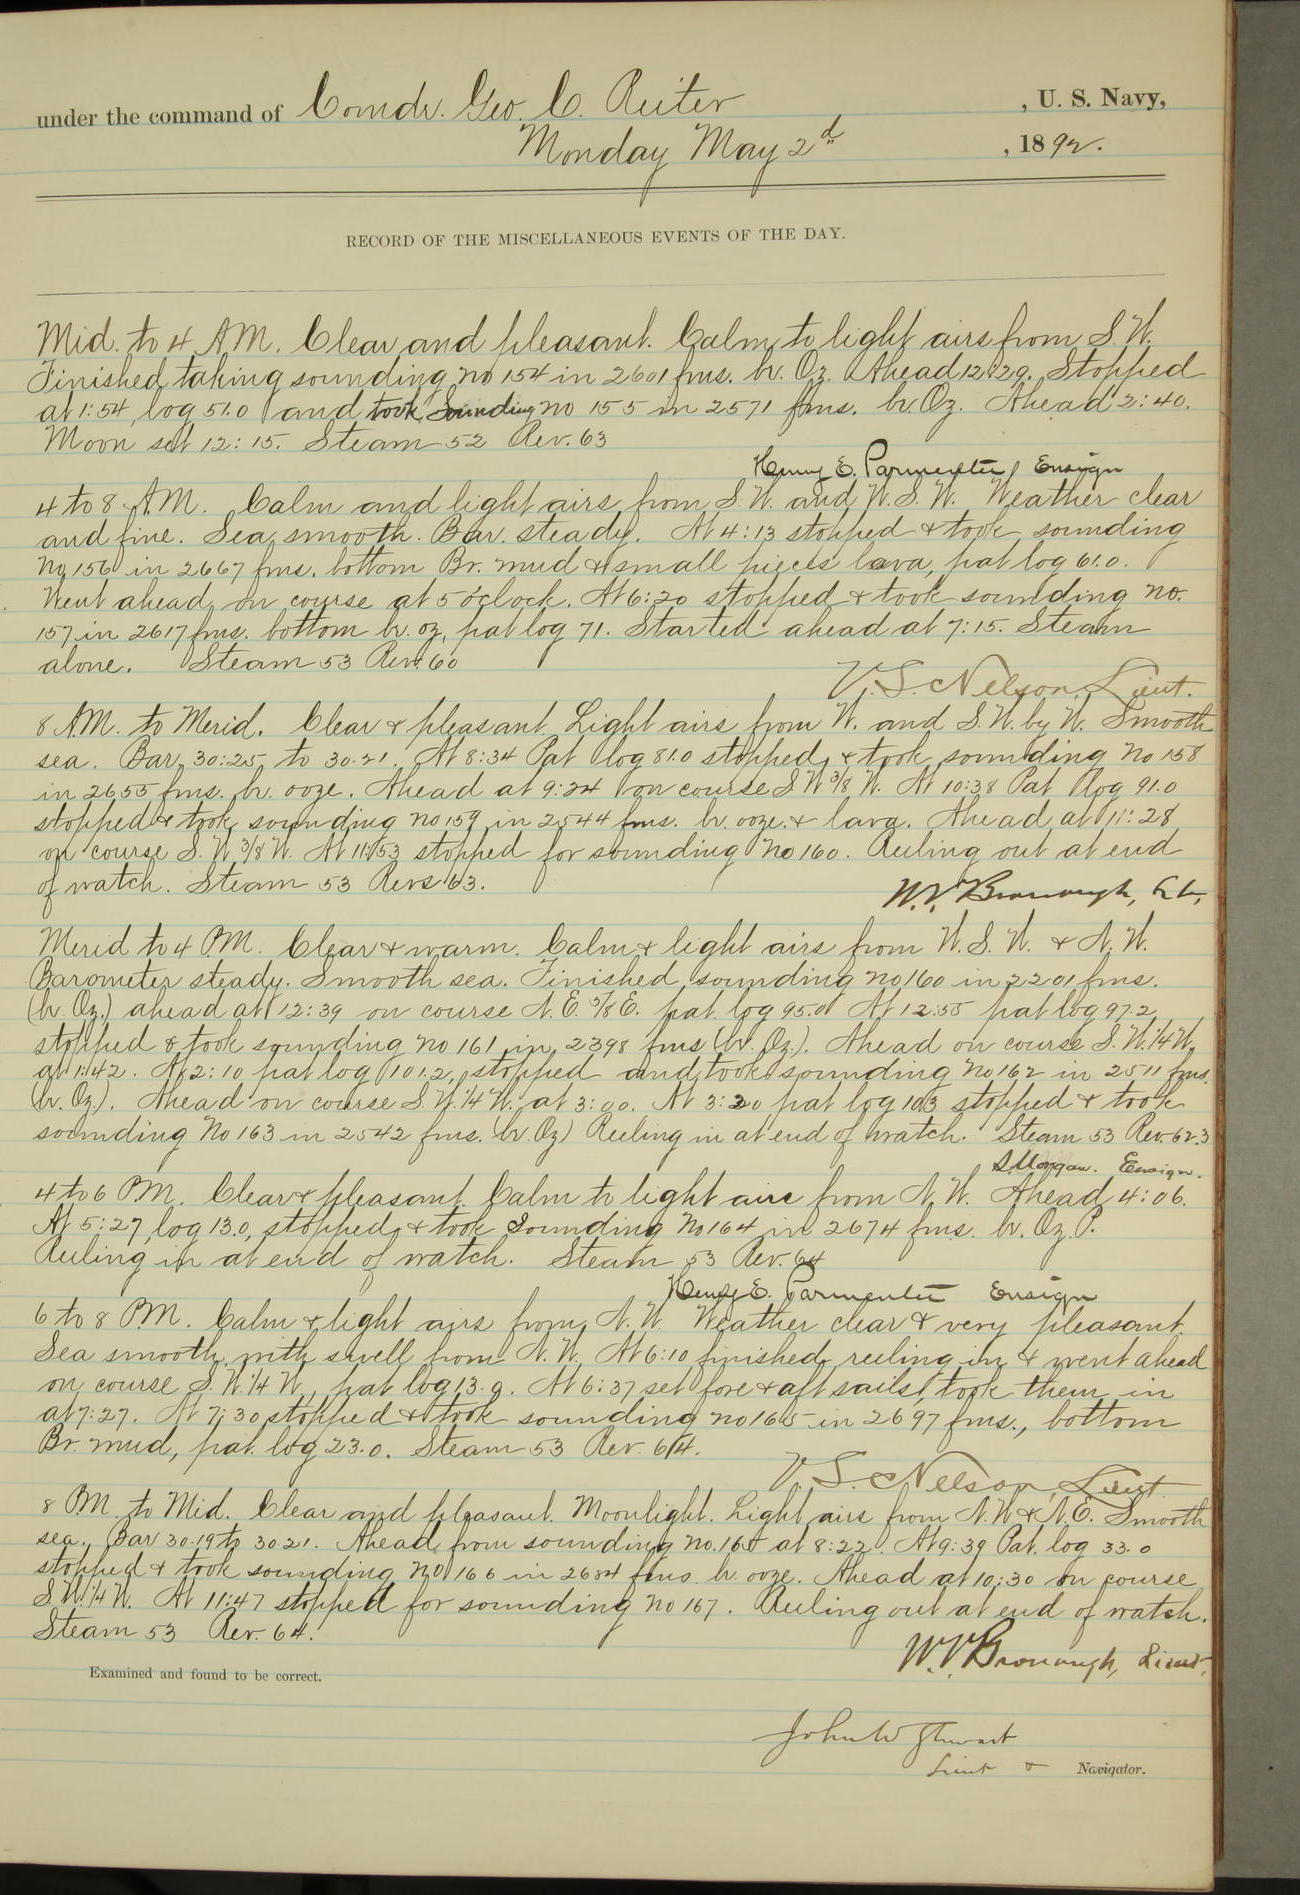 under the command of Comdr. Geo. C. Reiter , U. S. Navy,
Monday May 2d , 1892.
RECORD OF THE MISCELLANEOUS EVENTS OF THE DAY.
Mid. to 4 A.M. Clear and pleasant. Calm to light airs from S.W.
Finished taking sounding no 154 in 2601 fms. br. Oz. Ahead 12:29. Stopped
at 1:54, log 51.0 and took Sounding no 155 in 2571 fms. br. Oz. Ahead 2:40.
Moon set 12:15. Steam 52 Rev. 63
Henry E. Parmenter, Ensign
4 to 8 A.M. Calm and light airs from S.W. and W.S.W. Weather clear
and fine. Sea smooth. Bar. steady. At 4:13 stopped & took sounding
No 156 in 2667 fms. bottom Br. mud & small pieces lava, pat log 61.0.
Went ahead on course at 5 o'clock. At 6:20 stopped & took sounding no.
157 in 2617 fms. bottom br. oz, pat log 71. Started ahead at 7:15. Steam
alone. Steam 53 Rev. 60
V. S. Nelson, Lieut.
8 A.M. to Merid. Clear & pleasant. Light airs from W. and S.W. by W. Smooth
sea. Bar. 30.25 to 30.21. At 8:34 Pat log 81.0 stopped & took sounding No 158
in 2655 fms. br. ooze. Ahead at 9:24 on course S.W. 3/8 W. At 10:38 Pat log 91.0
stopped & took sounding no 159 in 2544 fms. br. ooze & lava. Ahead at 11:28
on course S.W. 3/8 W. At 11:53 stopped for sounding No 160. Reeling out at end
of watch. Steam 53 Revs 63.
W. V. Bronaugh, Lt.
Merid to 4 P.M. Clear & warm. Calm & light airs from W.S.W. & N.W.
Barometer steady. Smooth sea. Finished sounding no 160 in 2201 fms.
(br. Oz.) ahead at 12:39 on course N.E. 3/8 E. pat. log 95.0 At 12:55 pat log 97.2
stopped & took sounding No 161 in 2398 fms (br. Oz.). Ahead on course S.W. 1/4 W.
at 1:42. At 2:10 pat log 101.2, stopped and took sounding No 162 in 2511 fms.
(br. Oz.). Ahead on course S.W. 1/4 W. at 3:00. At 3:20 pat log 103 stopped & took
sounding No 163 in 2542 fms. (br. Oz) Reeling in at end of watch. Steam 53 Rev. 62.3
S. Morgan. Ensign.
4 to 6 P.M. Clear & pleasant. Calm to light airs from N.W. Ahead 4:06.
At 5:27, log 13.0, stopped & took Sounding No 164 in 2674 fms. br. Oz. P.
Reeling in at end of watch. Steam 53 Rev. 64
Henry E. Parmenter Ensign
6 to 8 P.M. Calm & light airs from N.W. Weather clear & very pleasant.
Sea smooth, with swell from N.W. At 6:10 finished reeling in & went ahead
on course S.W. 1/4 W., pat log 13.9. At 6:37 set fore & aft sails, took them in
at 7:27. At 7:30 stopped & took sounding no 165 in 2697 fms., bottom
Br. mud, pat. log 23.0. Steam 53 Rev. 64.
V. S. Nelson, Lieut.
8 P.M. to Mid. Clear and pleasant. Moonlight. Light airs from N.W. & N.E. Smooth
sea. Bar 30.19 to 30.21. Ahead from sounding No. 165 at 8:22. At 9:39 Pat. log 33.0
stopped & took sounding No 166 in 2684 fms. br. ooze. Ahead at 10:30 on course
S.W. 1/4 W. At 11:47 stopped for sounding No 167. Reeling out at end of watch.
Steam 53 Rev. 64.
W. V. Bronaugh, Lieut.
Examined and found to be correct.
John W Stewart
Lieut & Navigator.